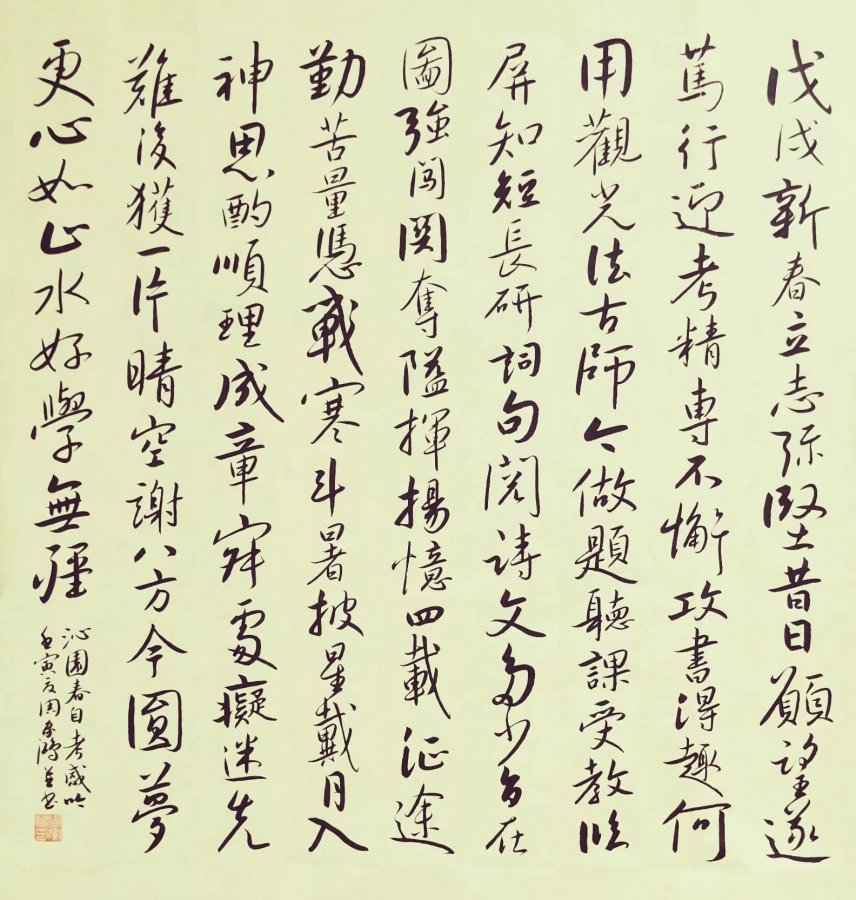 戊戌新春立志弥堅昔日願望遂
篤行迎考精專不懈攻書得趣何
用觀光法古師今做題聽課受教臨
屏知短長研詞句閱詩文多少旨在
圖強闖關奪隘揮揚憶四載征途
勤苦量憑戰寒斗暑披星戴月入
神思酌順理成章處癡迷先
難後獲一片晴空謝八方今圓夢
更心如止水好學無疆
沁園春自考感吟
壬寅夏周鴻并書